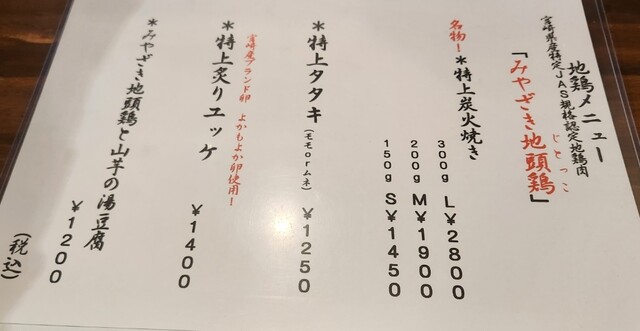 地鶏メニュー
宮崎県産特定JAS規格認定地鶏肉
じとっこ
「みやざき地頭鶏」
名物!
*特上炭火焼き
300g L¥2800
200g M¥1900
150g S¥1450
*特上タタキ(モモorムネ) ¥1250
宮崎産ブランド卵 よかもよか卵使用!
*特上炙りユッケ ¥1400
*みやざき地頭鶏と山芋の湯豆腐 ¥1200
(税込)